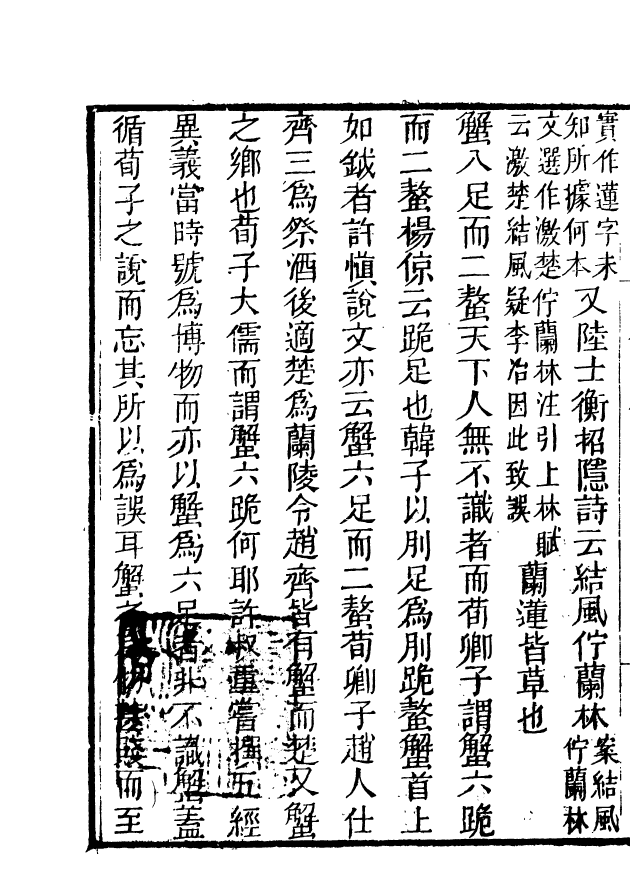 實作蓮字未
知所據何本
又陸士衡招隱詩云結風佇蘭林
案結風
佇蘭林
文選作激楚佇蘭林注引上林賦
云激楚結風疑李冶因此致誤
蘭蓮皆草也
蟹八足而二螯天下人無不識者而荀卿子謂蟹六跪
而二螯楊倞云跪足也韓子以刖足爲刖跪螯蟹首上
如鉞者許愼說文亦云蟹六足而二螯荀卿子趙人仕
齊三爲祭酒後適楚爲蘭陵令趙齊皆有蟹而楚又蟹
之鄉也荀子大儒而謂蟹六跪何耶許叔重嘗撰五經
異義當時號爲博物而亦以蟹爲六足者非不識蟹蓋
循荀子之說而忘其所以爲誤耳蟹之物賤而至